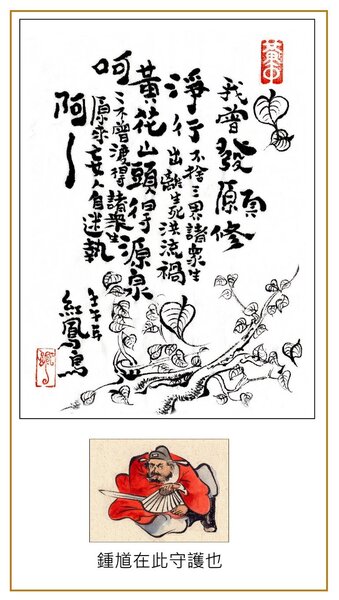 我曾發願修
淨行
不捨三界諸眾生
出離生死洪流禍
黃花山頭得源泉
呵
不曾渡得諸眾生
原來妄人自迷執
阿
壬午年
紅鳳鳥
鍾馗在此守護也